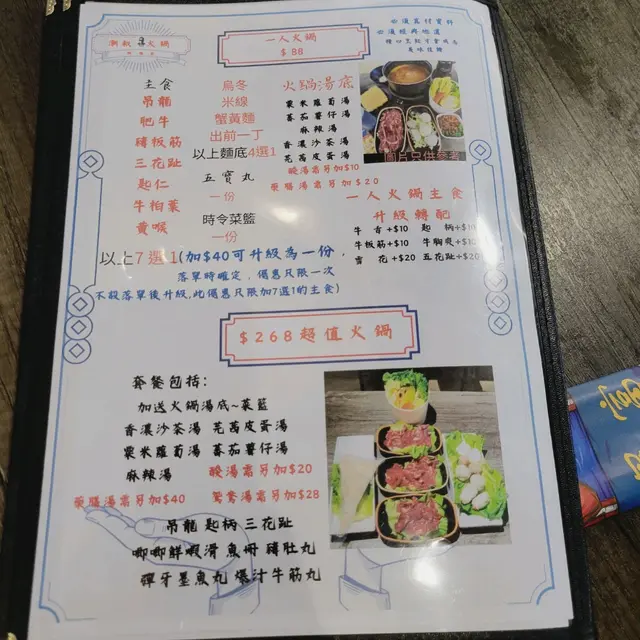 潮敘 火鍋
一人火鍋
$88
主食
吊龍
肥牛
磚板筋
三花趾
匙仁
牛柏葉
黃喉
烏冬
米線
蟹黃麵
出前一丁
以上麵底4選1
五寶丸
一份
時令菜籃
一份
火鍋湯底
粟米蘿蔔湯
蕃茄薯仔湯
麻辣湯
香濃沙茶湯
芫茜皮蛋湯
酸湯需另加$10
藥膳湯需另加$20
圖片只供參考
一人火鍋主食
升級轉配
牛舌+$10 匙柄+$10
牛板筋+$10 牛胸爽+$10
雪花+$20 五花趾+$20
以上7選1(加$40可升級為一份,
落單時確定,優惠只限一次
不設落單後升級,此優惠只限加7選1的主食)
$268超值火鍋
套餐包括:
加送火鍋湯底~菜籃
香濃沙茶湯 芫茜皮蛋湯
粟米蘿蔔湯 蕃茄薯仔湯
麻辣湯 酸湯需另加$20
藥膳湯需另加$40 鴛鴦湯需另加$28
吊龍 匙柄 三花趾
唧唧鮮蝦滑 魚冊 磚肚丸
彈牙墨魚丸 爆汁牛筋丸